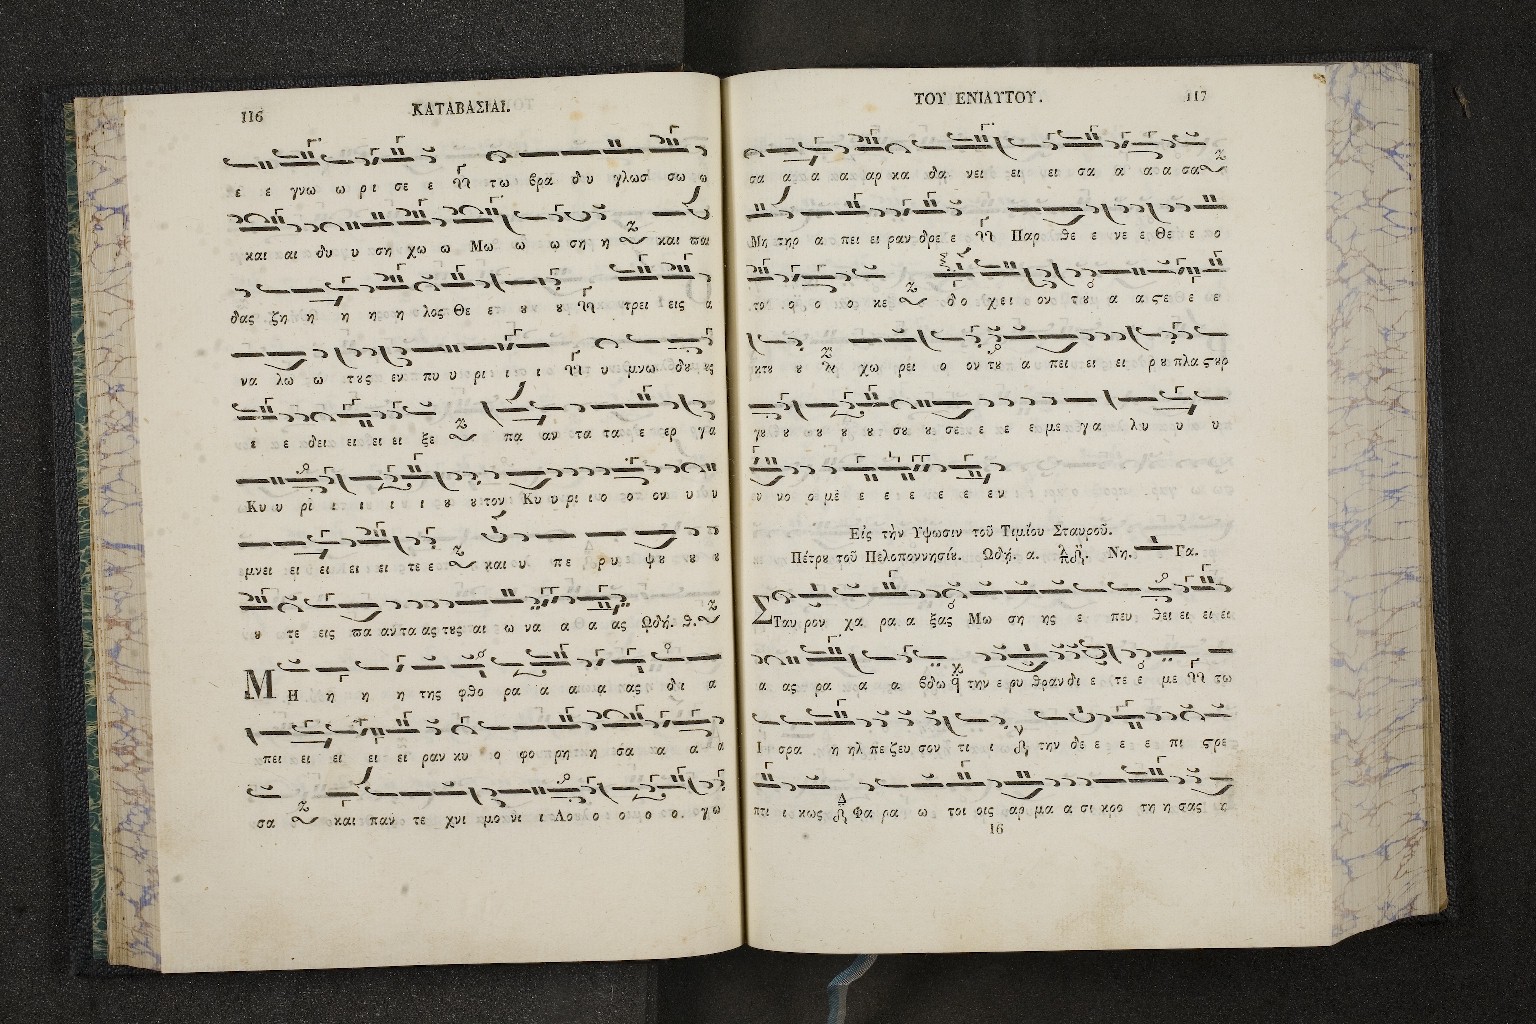 116
ΚΑΤΑΒΑΣΙΑΙ.
ε ε γνω ω ρι σε ε τω βρα δυ γλωσ σω ω
και αι δυ υ ση χω ω Μω ω ω ση η και πα
δας ζη η η η η λος Θε ε ȣ ȣ τρει εις α
να λω ω τȣς εν πυ υ ρι ι ι υ μνω δȣ ȣς
ε ε δει ει ει ει ξε πα αν τα τα ε ερ γα
Κυ υ ρι ι ι ι ι ȣ ȣ τον Κυ υ ρι ι ο ο ον υ υ
μνει ει ει ει ει ει τε ε και υ πε ρυ ψȣ ȣ ȣ
ȣ τε εις πα αν τα ας τȣς αι ω να α α ας Ωδή. θ.
Μ Η η η η της φθο ρα α α α ας δι α
πει ει ει ει ει ραν κυ ο φο ρη η σα α α α
σα και παν τε χνι μο νι ι Λο ο ο ο ο γω
ΤΟΥ ΕΝΙΑΥΤΟΥ.
117
σα α α α αρ κα δα νει ει ει σα α α α σα
Μη τηρ α πει ει ραν δρε ε Παρ θε ε νε ε Θε ε ο
το ο ο ο κε δο χει ον τȣ α α ϛε ε ε
κτȣ ȣ χω ρει ο ον τȣ α πει ει ει ρȣ πλα ϛȣρ
γȣ ȣ ȣ ȣ ȣ σȣ ȣ σε ε ε ε με γα λυ υ υ
υ νο ο με ε ε ε ε ε ε εν
Εἰς τὴν Ὕψωσιν τοῦ Τιμίου Σταυροῦ.
Πέτρȣ τοῦ Πελοποννησίȣ. Ωδή. α. Νη. Γα.
Σ Ταυ ρον χα ρα α ξας Μω ση ης ε πευ θει ει ει ει
α ας ρα α α βδω την ε ρυ θραν δι ε τε ε με τω
Ι σρα η ηλ πε ζευ σον τι ι την δε ε ε ε πι ϛρε
πτι ι κως Φα ρα ω τοι οις αρ μα α σι κρο τη η σας η
16